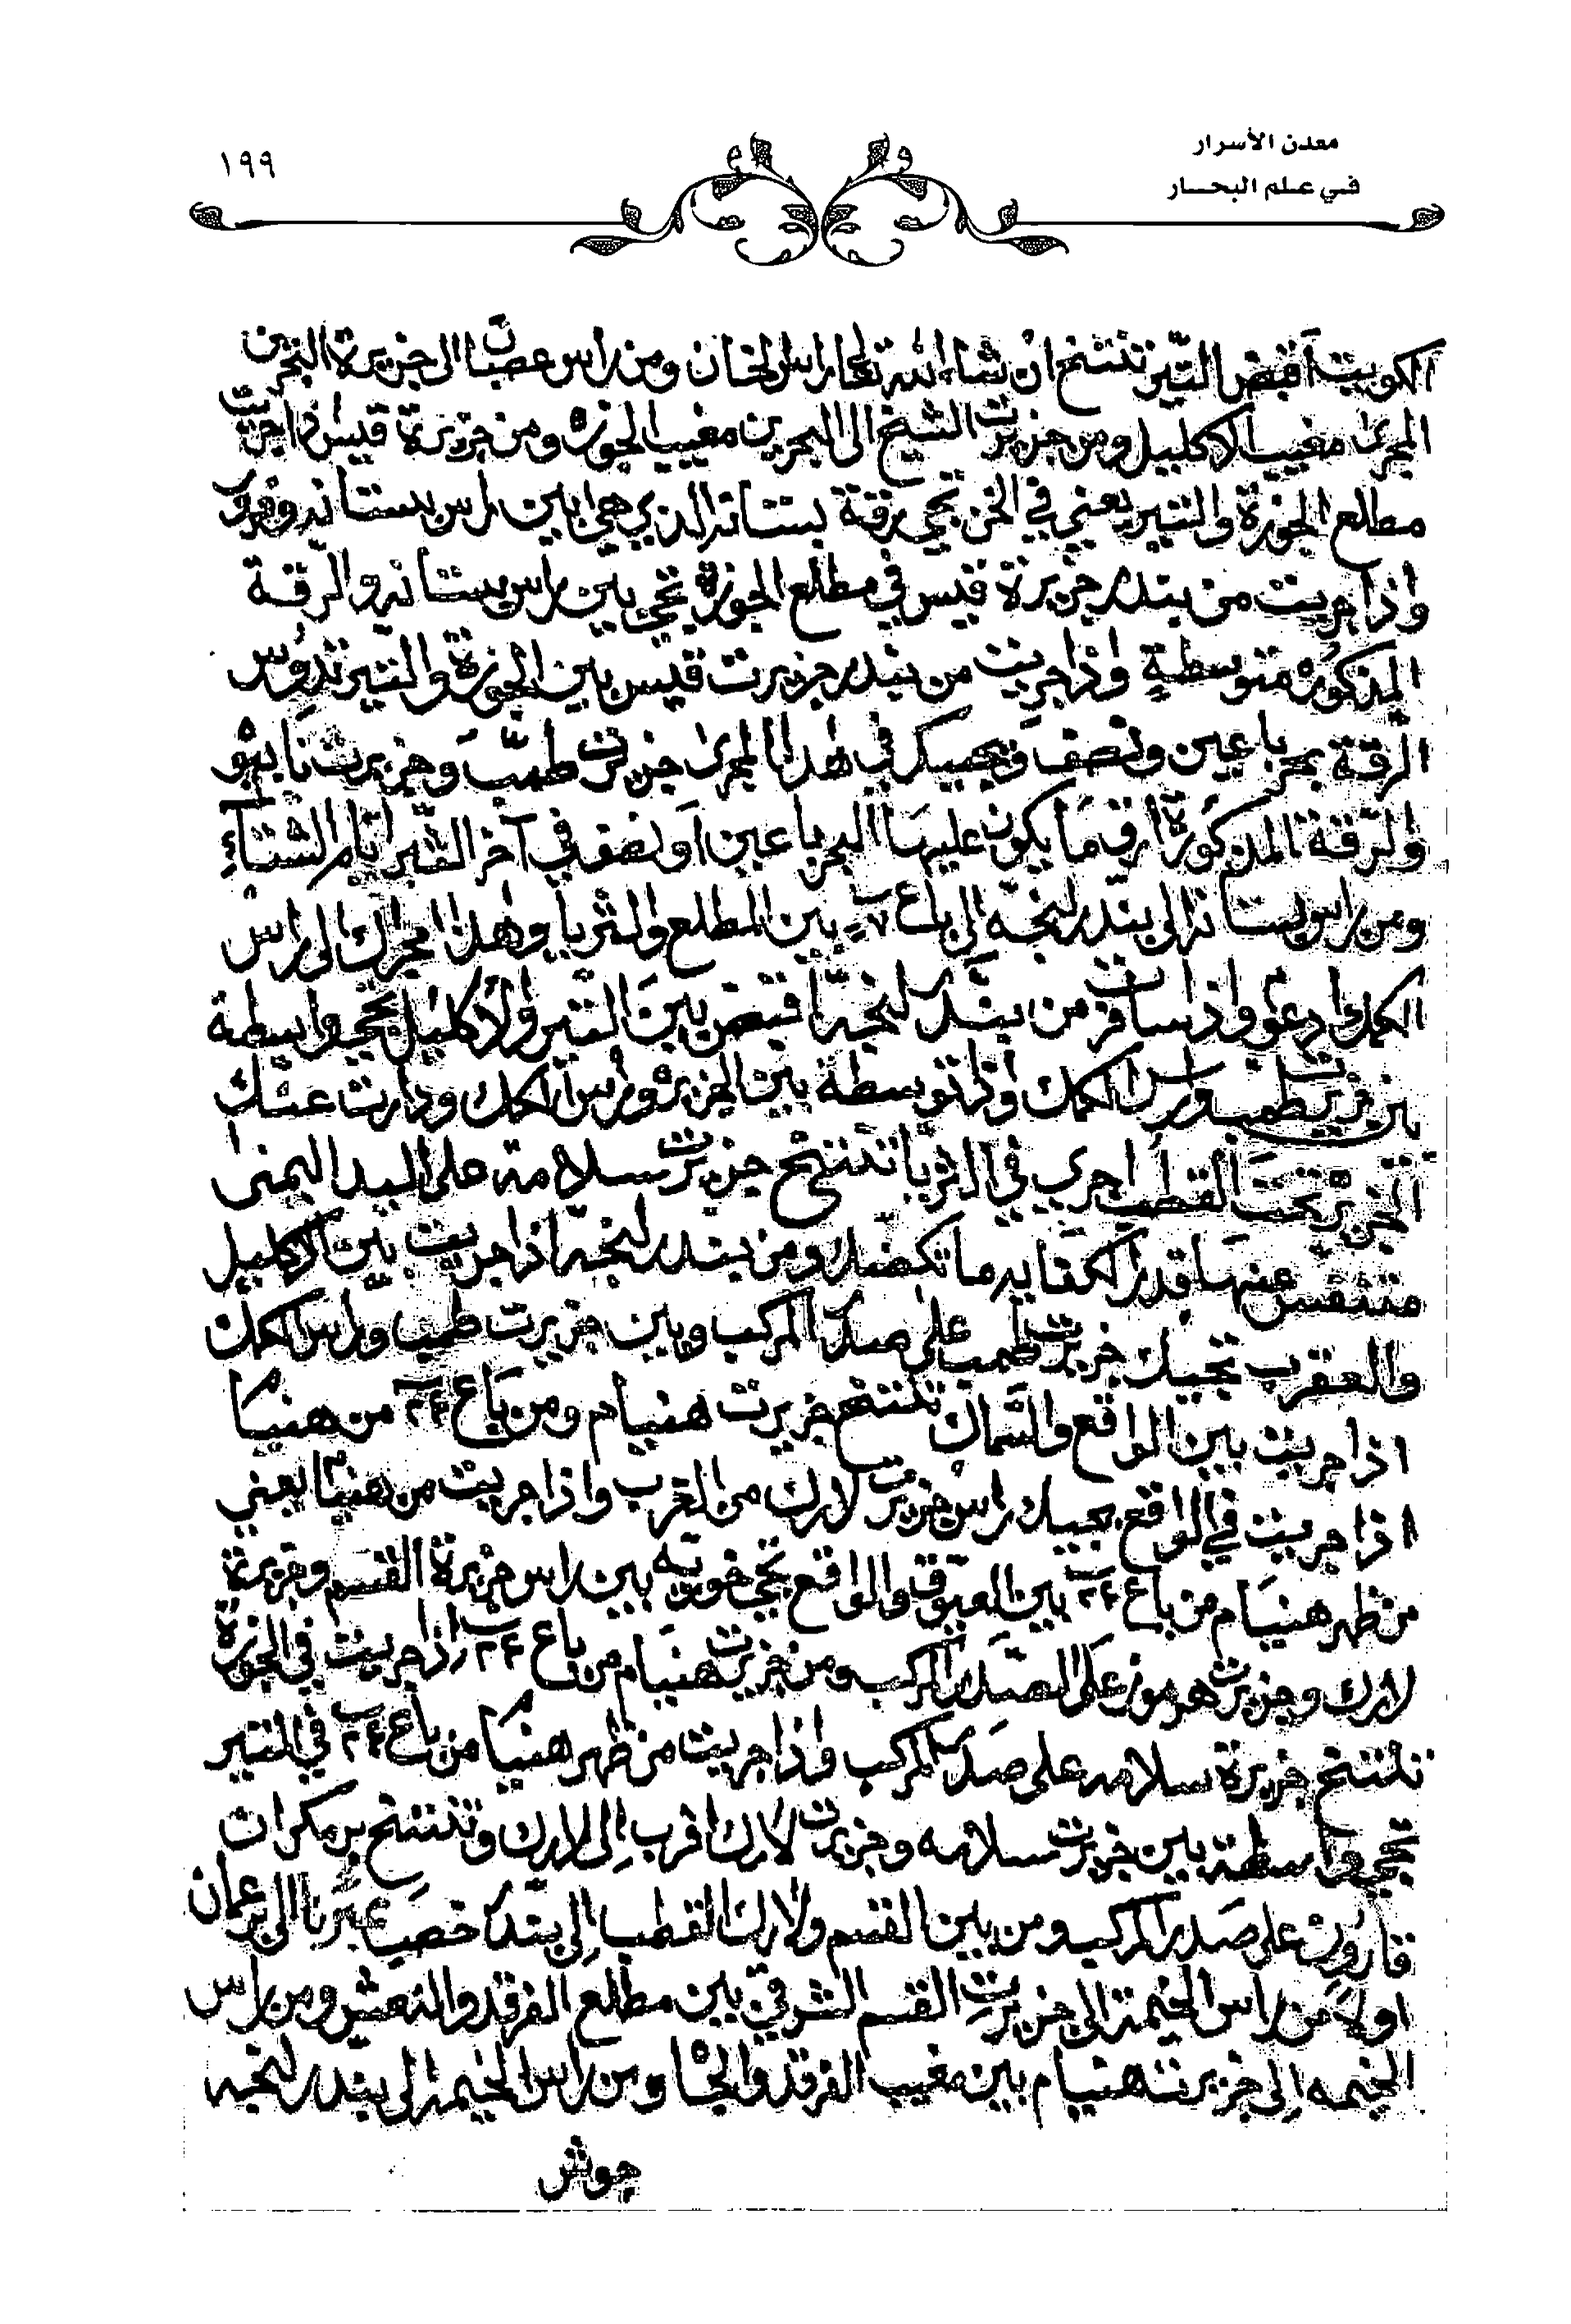 معدن الأسرار
في علم البحار
١٩٩
الكويت اقبض التير تنتخ ان شاء الله تعالى راس الخان ومن راس عصبان الى جزيرة البحرين
المجرى مغيب الاكليل ومن جزيرت الشيخ الى البحرين مغيب الجوزه ومن جزيرة قيس اذا جريت
مطلع الجوزة والتير يعني في الخن تجي رقة بستانه الذي هي بين راس بستانه وفرور
واذا جريت من بندر جزيرة قيس في مطلع الجوزه تجي بين راس بستانه والرقة
المذكوره متوسطة واذا جريت من بندر جزيرت قيس بين الجوزة والتير تدوس
الرقة بحر باعين ونصف ويجيك في هذا المجرى جزيرت طمب وجزيرت نابيو
والرقة المذكورة ارق ما يكون عليها البحر باعين او نصف في آخر القير ايام الشتاء
ومن راس بستانه الى بندر لنجه الى باع ٧ بين المطلع والثريا وهذا مجراك الى راس
الكلك وادعو واذا سافرت من بندر لنجه اقبض بين التير والاكليل تجي واسطة
بين جزيرت طمب وراس الكلك واذا توسطة بين الجزيره وراس الكلك ودارت عنك
الجزيره تحت القطب اجري في الثريا تنتخ جزيرت سلامة على اليد اليمنى
متنفس عنها قدر الكفايه ما تكضك ومن بندر لنجه اذا جريت بين الاكليل
والعقرب تجيك جزيرت طمب على صدر المركب وبين جزيرت طمب وراس الكلك
اذا جريت بين الواقع والسماك تنتخ جزيرت هنيام ومن باع ٢٤ من هنيام
اذا جريت في الواقع يجيك راس جزيرت لارك من الغرب واذا جريت من هنيام يعني
من ظهر هنيام من باع ٢٤ بين العيوق والواقع تجي خوريه بين راس جزيرة القسم وجزيرة
لارك وجزيرت هوموز على الصدر المركب ومن جزيرت هنيام من باع ٢٤ اذا جريت في الجوزة
تنتخ جزيرة سلامه على صدر المركب واذا جريت من ظهر هنيام من باع ٢٤ في التير
تجي واسطة بين جزيرت سلامه وجزيرت لارك اقرب الى لارك وتنتخ بر مكران
قارون على صدر المركب ومن بين القسم ولارك القطب الى بندر خصب عبرنا الى بر عمان
اولا من راس الخيمة الى جزيرت القسم الشرقي بين مطلع الفرقد والنعش ومن راس
الخيمه الى جزيرت هنيام بين مغيب الفرقد والجا ومن راس الخيمه الى بندر لنجه
جوش